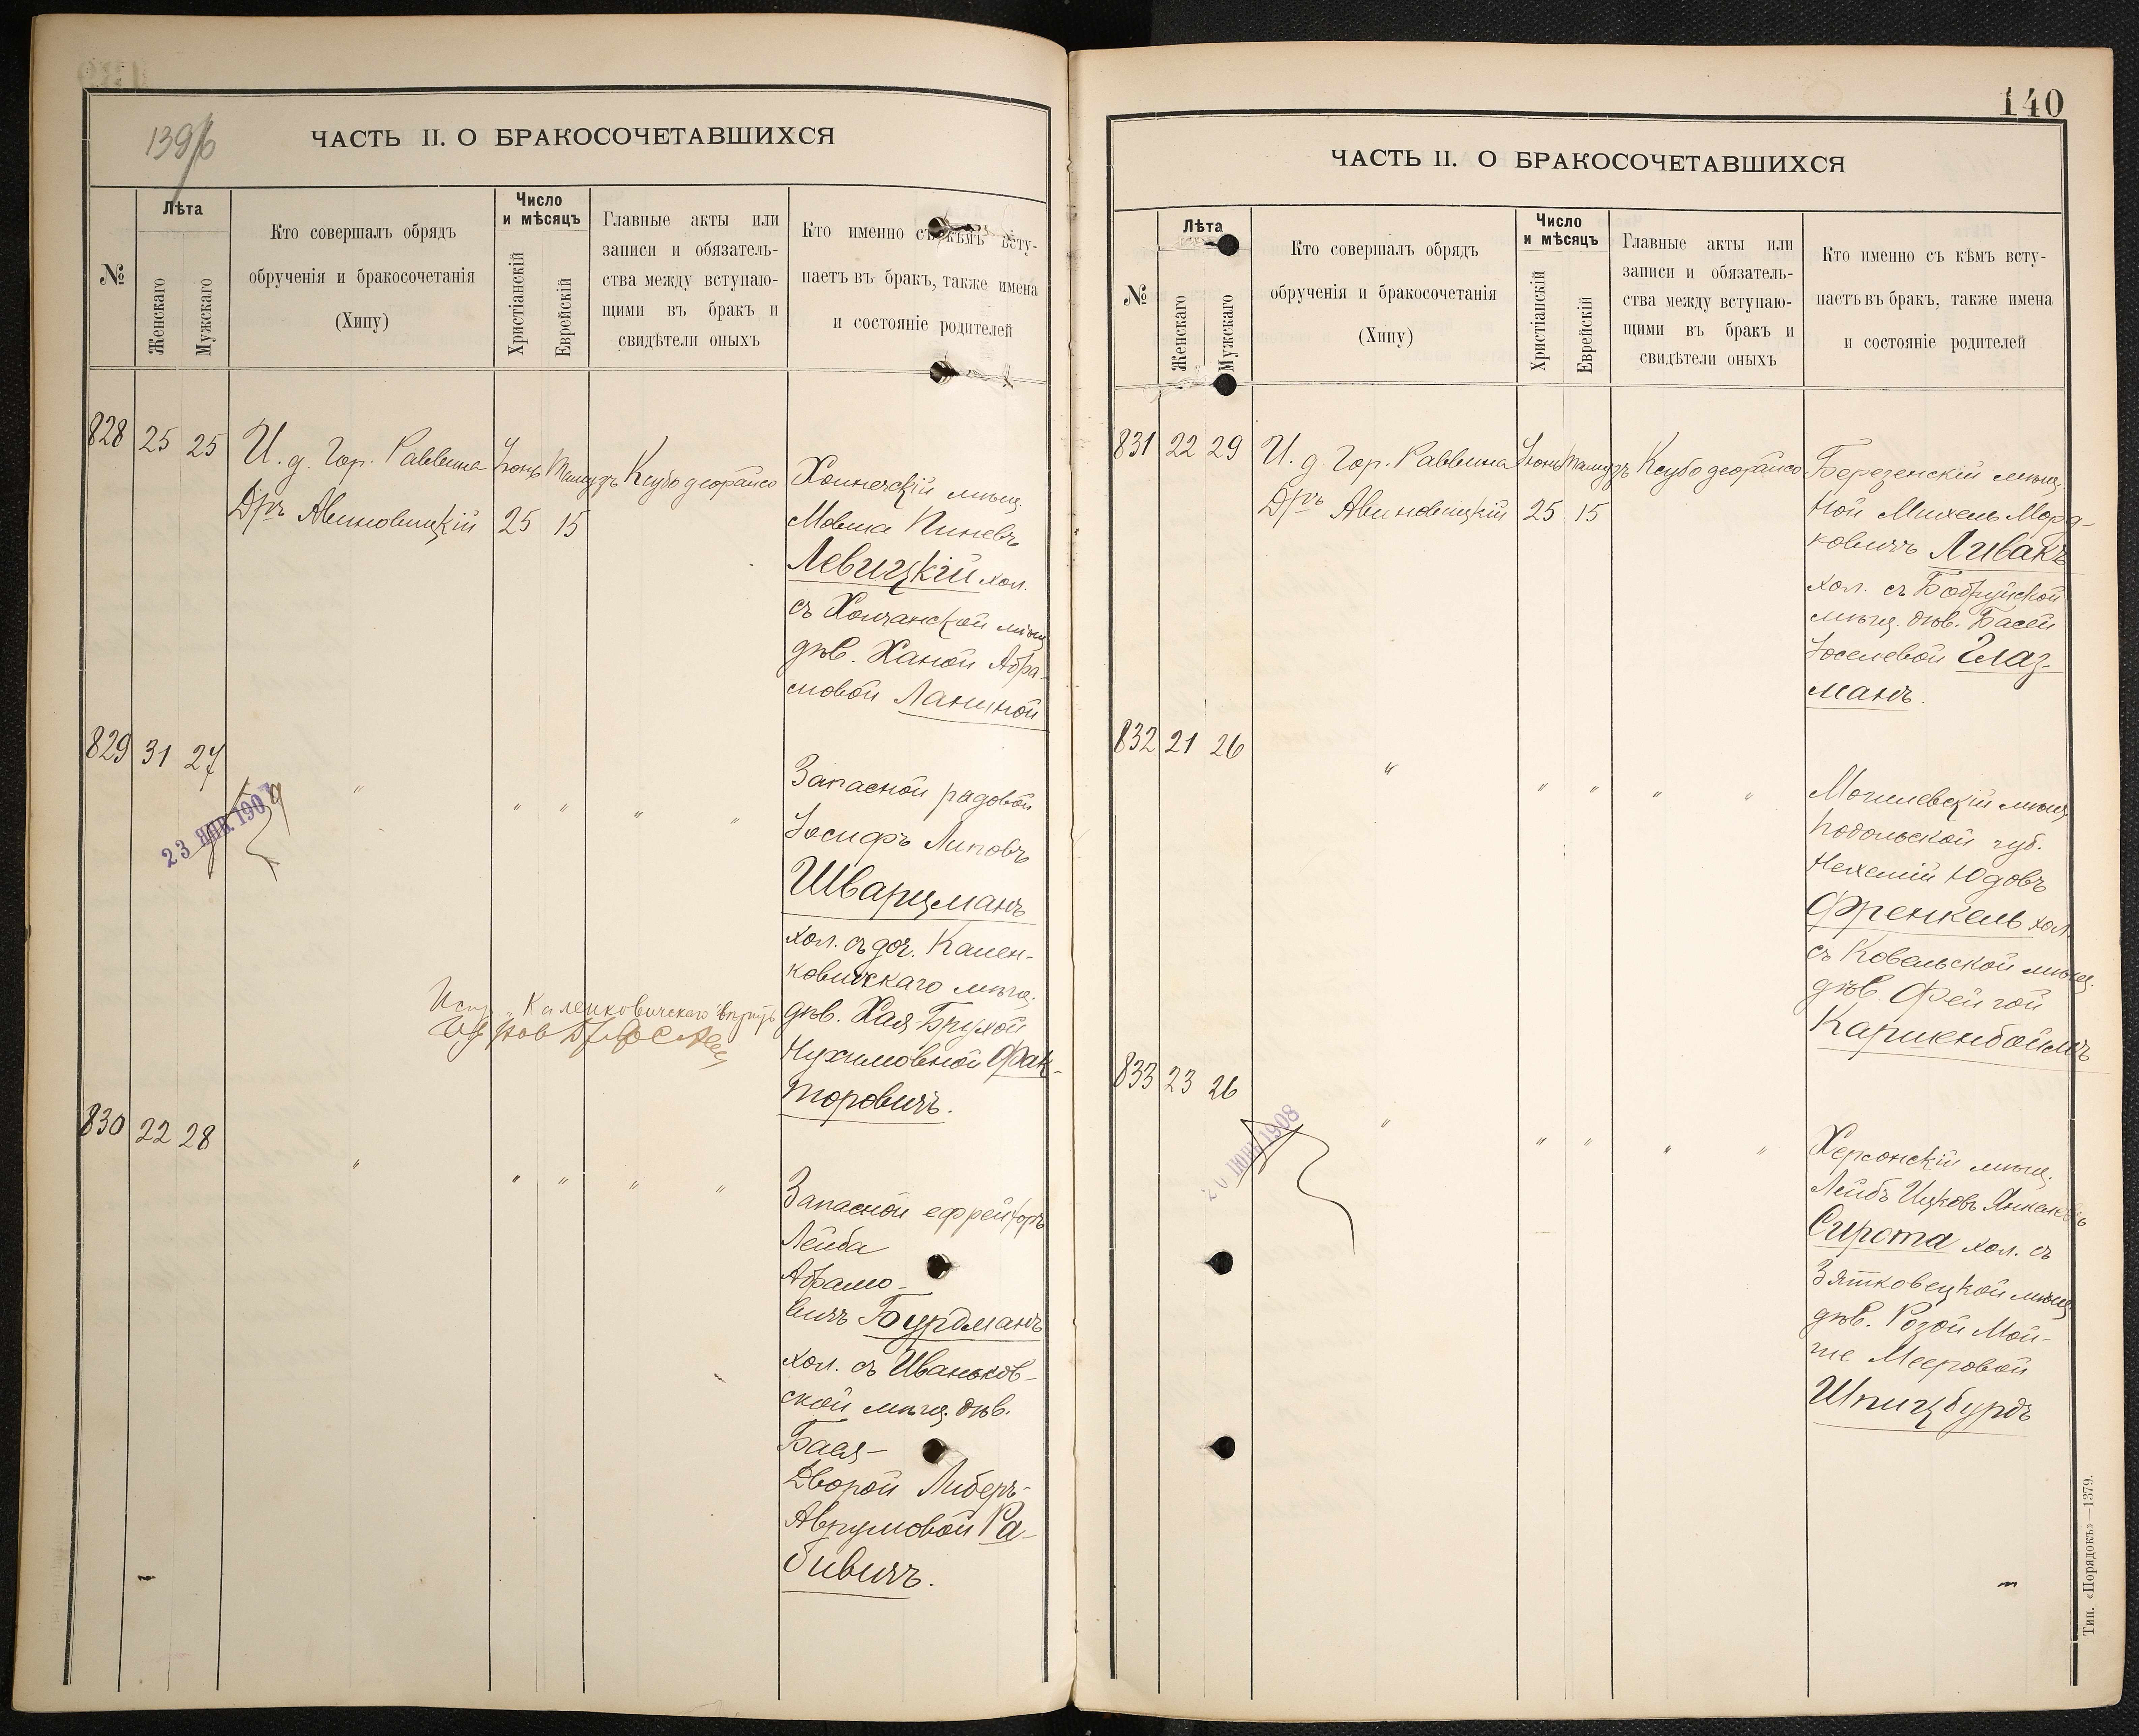 139/б
ЧАСТЬ II. О БРАКОСОЧЕТАВШИХСЯ
№
Лѣта
Женскаго
Мужскаго
Кто совершалъ обрядъ
обрученія и бракосочетанія
(Хипу)
Число
и мѣсяцъ
Христіанскій
Еврейскій
Главные акты или
записи и обязатель-
ства между вступаю-
щими въ бракъ и
свидѣтели оныхъ
Кто именно съ кѣмъ всту-
паетъ въ бракъ, также имена
и состояніе родителей
828 25 25
И. д. Гор. Раввина
Дръ Авиновицкій
Іюнь Тамузъ
25 15
Ксубо деорайсо
мѣщ.
Мовша Пиневъ
Левицкій хол.
съ мѣщ.
дѣв. Ханой Абра-
мовой Ланиной
829 31 27
23 ЯНВ. 1907
" " " " "
Запасной рядовой
Іосифъ Липовъ
Шварцманъ
хол. съ доч. Кален-
ковичскаго мѣщ.
дѣв. Хая-Брухой
Нухимовной Фак-
торовичъ.
Каленковичскаго вѣрить
830 22 28
" " " " "
Запасной ефрейторъ
Лейба
Абрамо-
вичъ Бурдманъ
хол. съ Иваньков-
ской мѣщ. дѣв.
Бася-
Дворой Либеръ-
Аврумовой Ра-
бивичъ.
140
ЧАСТЬ II. О БРАКОСОЧЕТАВШИХСЯ
№
Лѣта
Женскаго
Мужскаго
Кто совершалъ обрядъ
обрученія и бракосочетанія
(Хипу)
Число
и мѣсяцъ
Христіанскій
Еврейскій
Главные акты или
записи и обязатель-
ства между вступаю-
щими въ бракъ и
свидѣтели оныхъ
Кто именно съ кѣмъ всту-
паетъ въ бракъ, также имена
и состояніе родителей
831 22 29
И. д. Гор. Раввина
Дръ Авиновицкій
Іюнь Тамузъ
25 15
Ксубо деорайсо
Березенскій мѣщ.
Михель Морд-
ковичъ Ливакъ
хол. съ Бобруйской
мѣщ. дѣв. Басей
Іоселевой Глаз-
манъ.
832 21 26
" " " " "
Могилевскій мѣщ.
Подольской губ.
Нехемій Юдовъ
Френкель хол.
съ Ковельской мѣщ.
дѣв. Фейгой
Каршенбоймъ
833 23 26
1908
" " " " "
Херсонскій мѣщ.
Лейбъ Ицковъ Янкелевъ
Сирота хол. съ
Зятковецкой мѣщ.
дѣв. Розой Мой-
ше Мееровой
Шпицбурдъ
Тип. «Порядокъ»—1379.